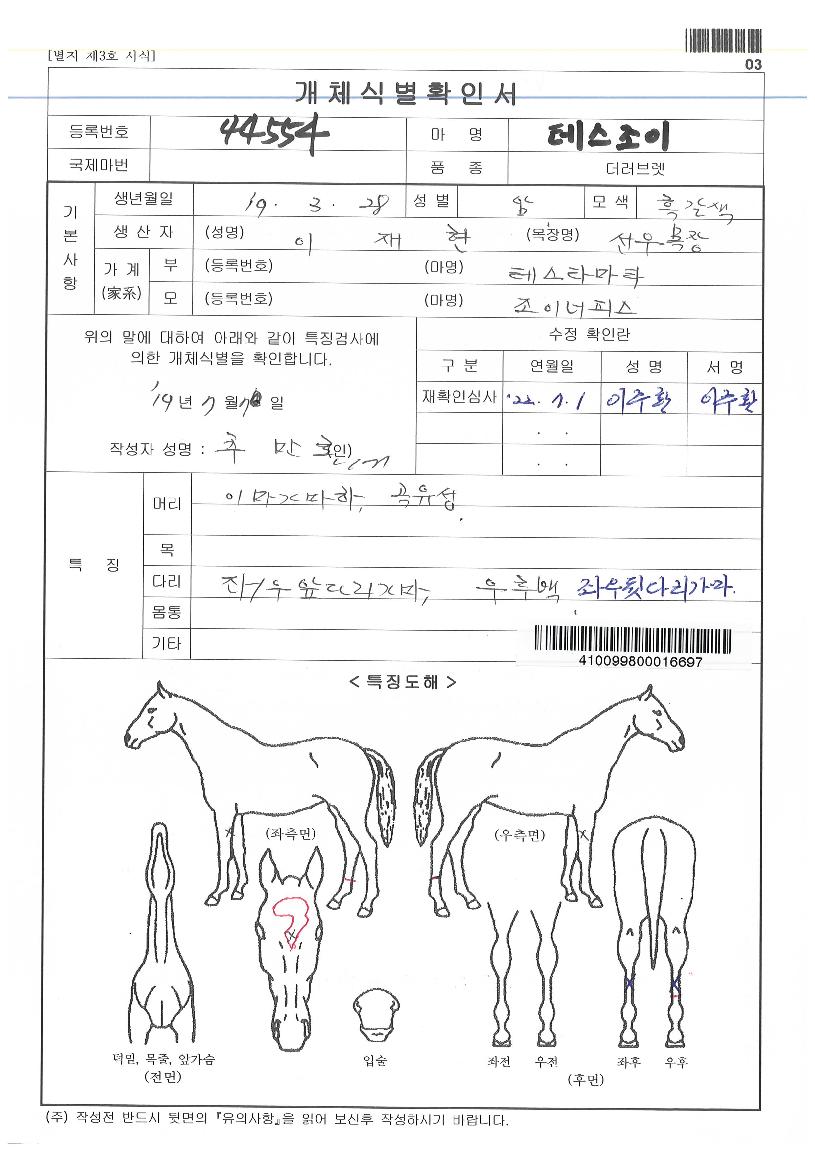 [별지 제3호 서식]
03
개체식별확인서
등록번호 44554 마 명 테스조이
국제마번 품 종 더러브렛
기본사항
생년월일 19. 3. 28 성 별 암 모 색 흑갈색
생 산 자 (성명) 이 재 현 (목장명) 선우목장
가 계 (家系) 부 (등록번호) (마명) 테스타마타
모 (등록번호) (마명) 조이너피스
위의 말에 대하여 아래와 같이 특징검사에
의한 개체식별을 확인합니다.
'19년 7 월 일
작성자 성명 : 추 만 호 (인)
수정 확인란
구 분 연월일 성 명 서 명
재확인심사 '22. 7. 1 이주환 이주환
. .
. .
특 징
머리 이마가마하, 곡유성
목
다리 좌우앞다리가마, 우후백 좌우뒷다리가마.
몸통
기타
410099800016697
< 특징도해 >
(좌측면) (우측면)
턱밑, 목줄, 앞가슴
(전면)
입술
좌전 우전 좌후 우후
(후면)
(주) 작성전 반드시 뒷면의 『유의사항』을 읽어 보신후 작성하시기 바랍니다.